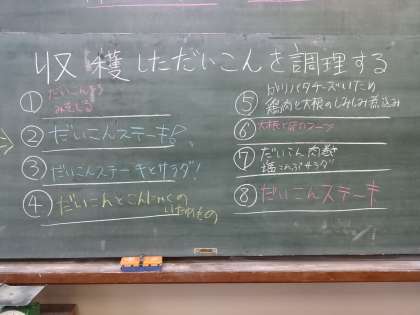 収穫しただいこんを調理する
① だいこん
みそしる
② だいこんステーキ!
③ だいこんステーキとサラダ!
④ だいこんとこんにゃくの
いためもの
⑤
鶏肉と大根のしみしみ煮込み
⑥ 大根と
⑦ だいこん肉巻
塩こんぶサラダ
⑧ だいこんステーキ